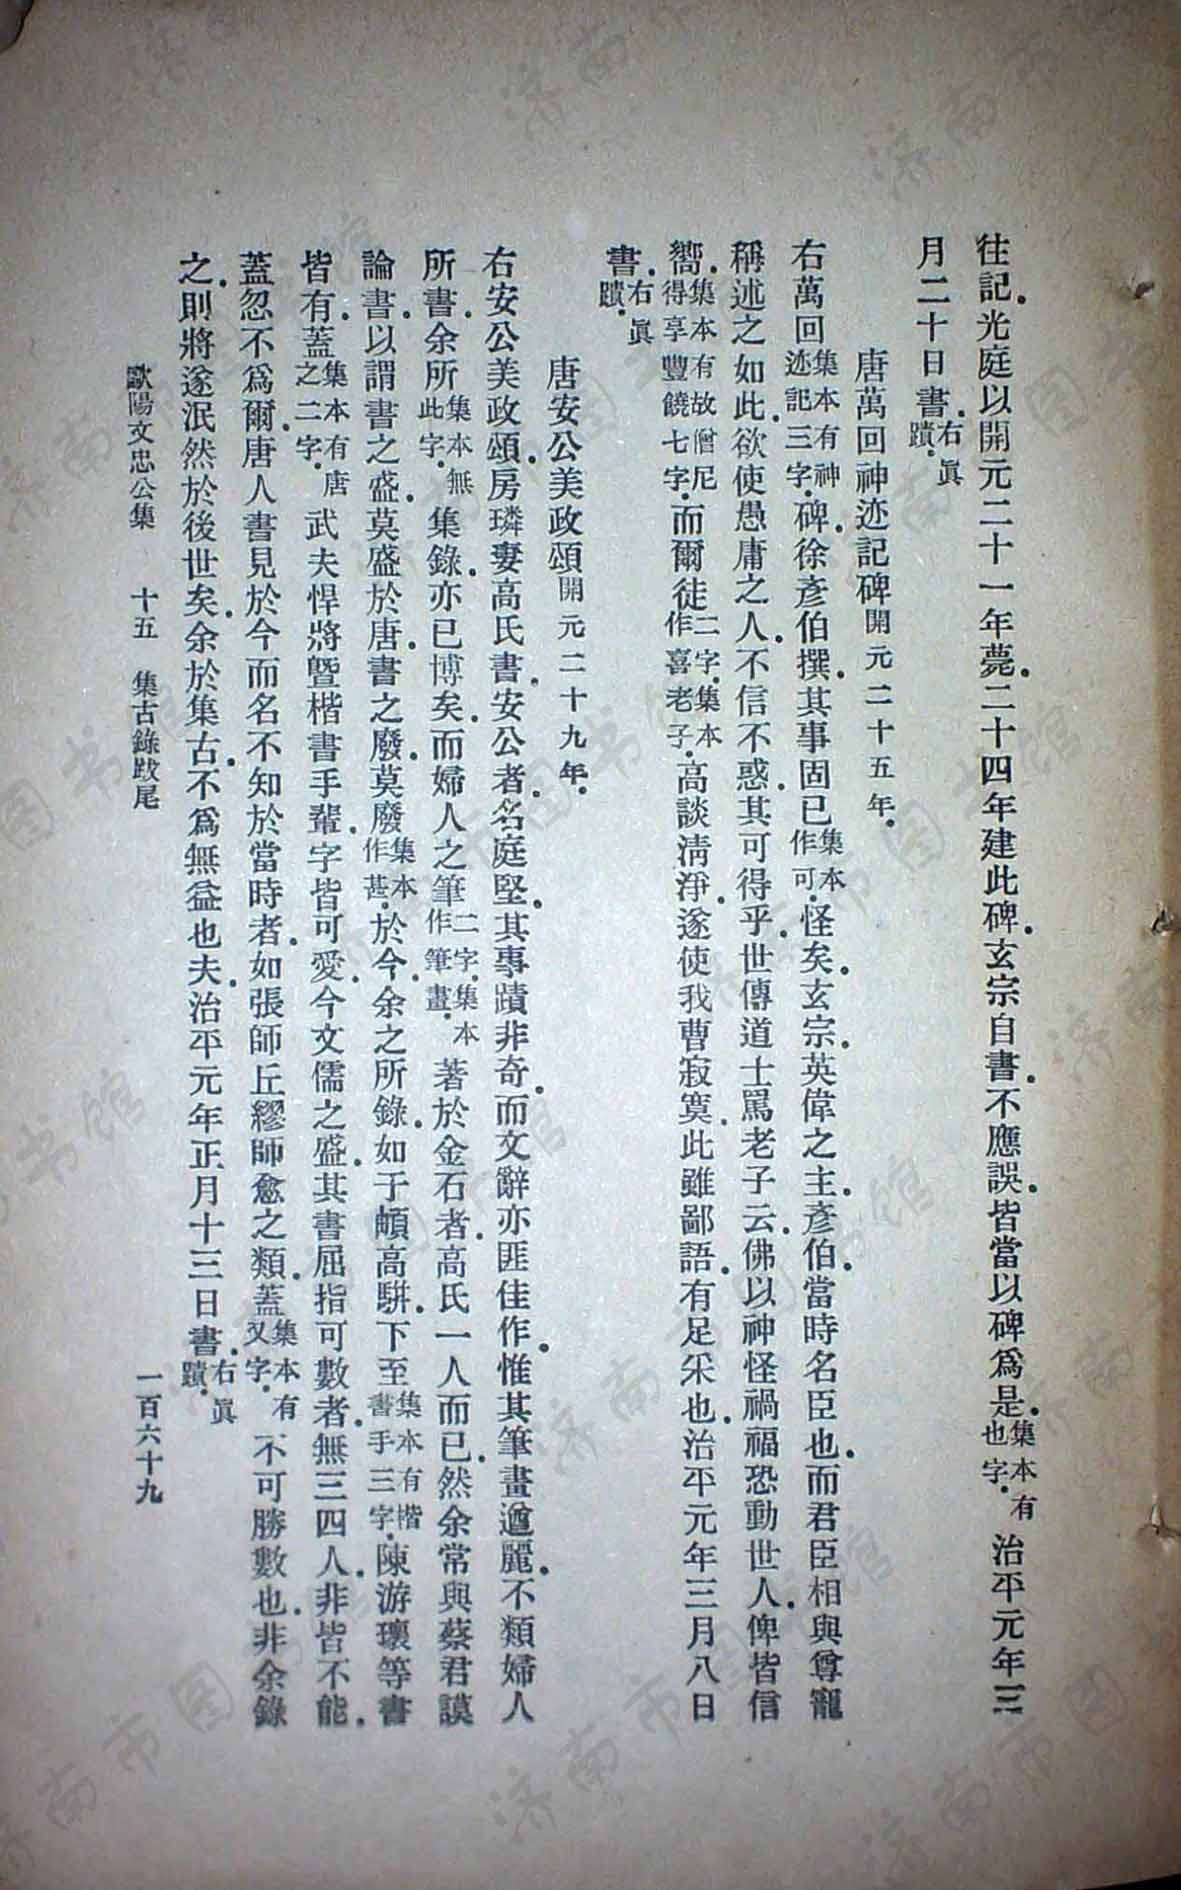 往記光庭以開元二十一年薨二十四年建此碑玄宗自書不應誤皆當以碑爲是集本有也字治平元年三
月二十日書右眞蹟
唐萬回神迹記碑開元二十五年
右萬回集本有神迹記三字碑徐彥伯撰其事固已集本作可怪矣玄宗英偉之主彥伯當時名臣也而君臣相與尊寵
稱述之如此欲使愚庸之人不信不惑其可得乎世傳道士罵老子云佛以神怪禍福恐動世人俾皆信
嚮集本有故僧尼得享豐饒七字而爾徒二字集本作喜老子高談清淨遂使我曹寂寞此雖鄙語有足采也治平元年三月八日
書右眞蹟
唐安公美政頌開元二十九年
右安公美政頌房璘妻高氏書安公者名庭堅其事蹟非奇而文辭亦匪佳作惟其筆畫遒麗不類婦人
所書余所集本無此字集錄亦已博矣而婦人之筆二字集本作筆畫著於金石者高氏一人而已然余常與蔡君謨
論書以謂書之盛莫盛於唐書之廢莫廢集本作甚於今余之所錄如于頔高駢下至集本有楷書手三字陳游瓌等書
皆有蓋集本有唐之二字武夫悍將曁楷書手輩字皆可愛今文儒之盛其書屈指可數者無三四人非皆不能
蓋忽不爲爾唐人書見於今而名不知於當時者如張師丘繆師愈之類蓋集本有又字不可勝數也非余錄
之則將遂泯然於後世矣余於集古不爲無益也夫治平元年正月十三日書右眞蹟
歐陽文忠公集 十五 集古錄跋尾 一百六十九
济南市图书馆